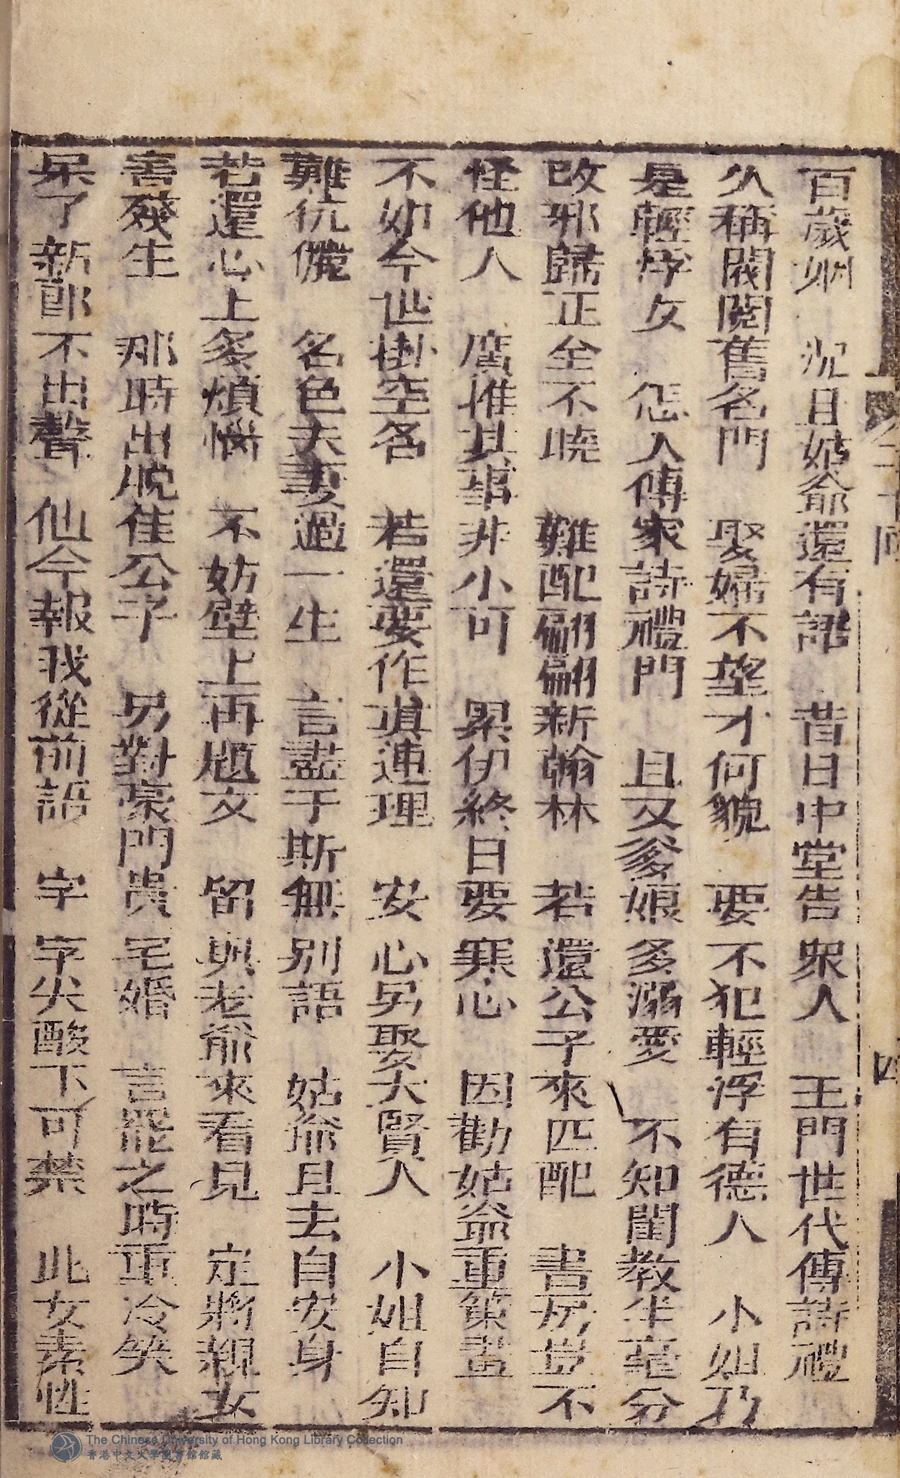 百歲姻　況且姑爺還有話　昔日中堂告衆人　王門世代傳詩禮
久稱閥閱舊名門　娶婦不望才何貌　要不犯輕浮有德人　小姐乃
是輕浮女　怎入傳家詩禮門　且又爹娘多溺愛　不知閨教半毫分
改邪歸正全不曉　難配翩翩新翰林　若還公子來匹配　書房豈不
怪他人　腐推其事非小可　累伊終日要寒心　因勸姑爺重策畫
不如今世掛空名　若還要作真連理　安心另娶大賢人　小姐自知
難伉儷　名色夫妻過一生　言盡于斯無别語　姑爺且去自安身
若還心上多煩惱　不妨壁上再題文　留與老爺來看見　定將親女
善殘生　那時出脫佳公子　另對豪門貴宅婚　言罷之時重冷笑
呆了新郎不出聲　他今報我從前語　字字尖酸下可禁　此女素性
二十回
四
The Chinese University of Hong Kong Library Collection
香港中文大學圖書館館藏